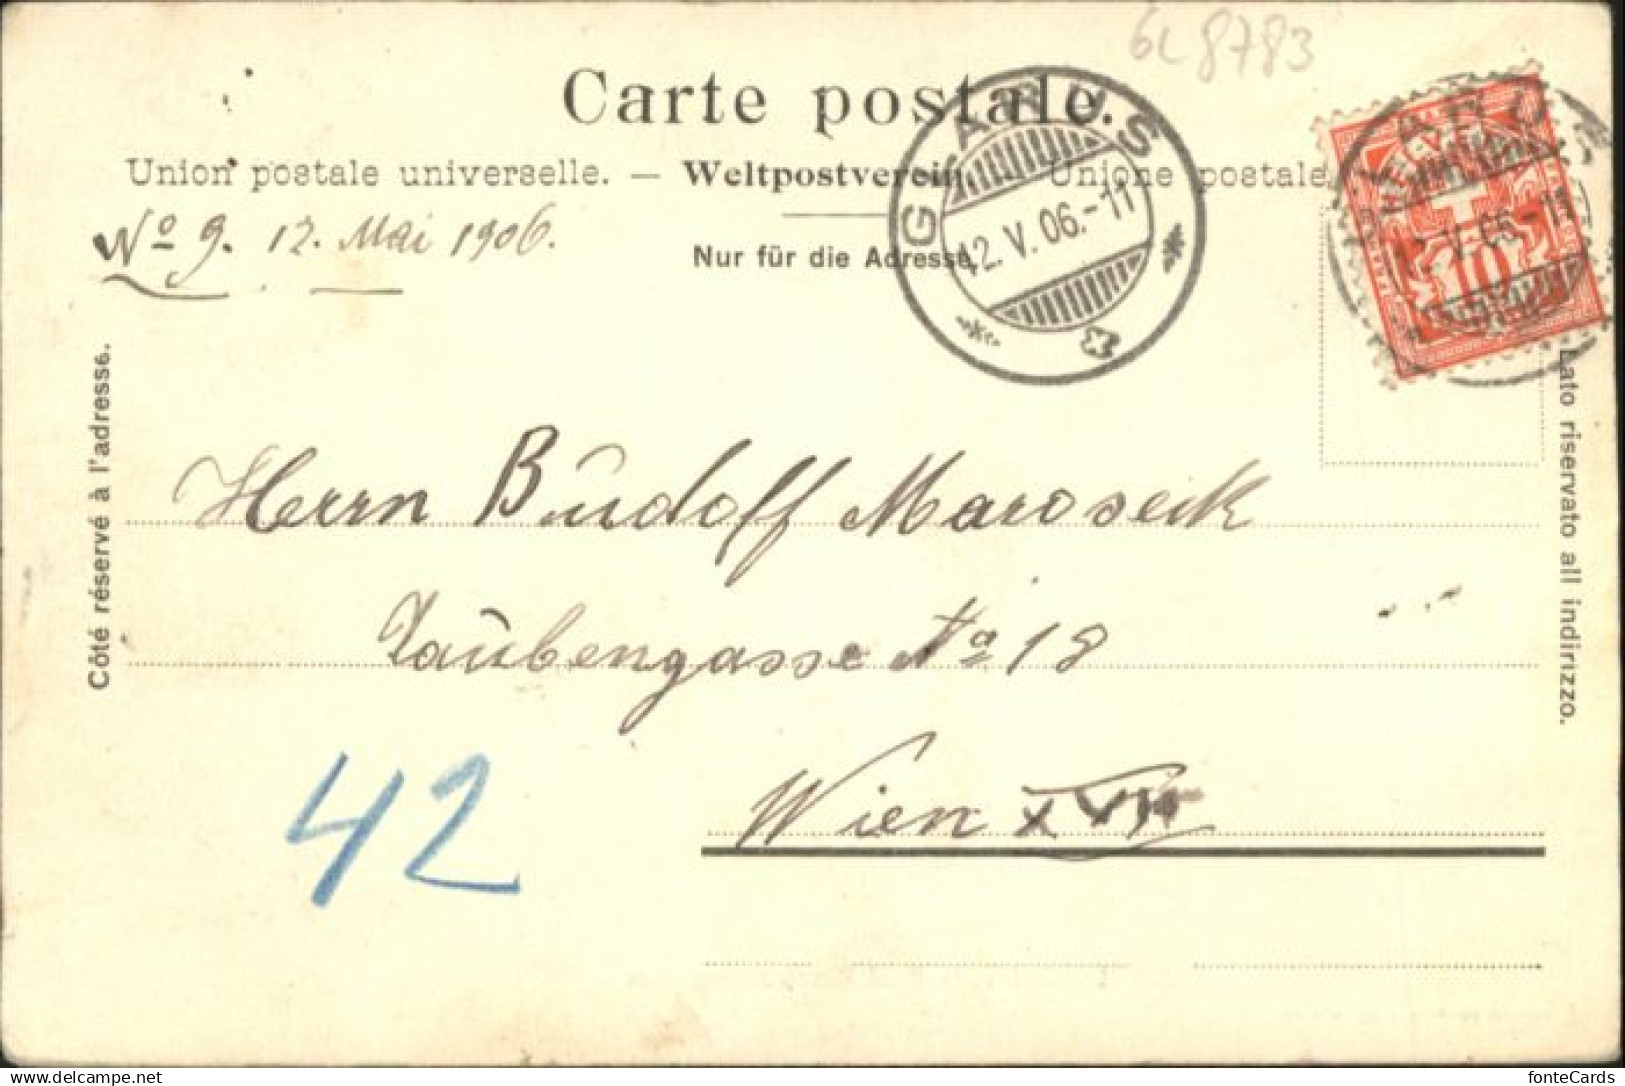 6L 8783
Carte postale.
Union postale universelle. — Weltpostverein. — Unione postale
Nur für die Adresse.
No 9. 12. Mai 1906.
GLARUS
12.V.06.-11
12.V.06.-11
10
Côté réservé à l'adresse.
Lato riservato all indirizzo.
Herrn Rudolf Maroseck
Taubengasse No 18
Wien XVII
42
delcampe.net
fonteCards